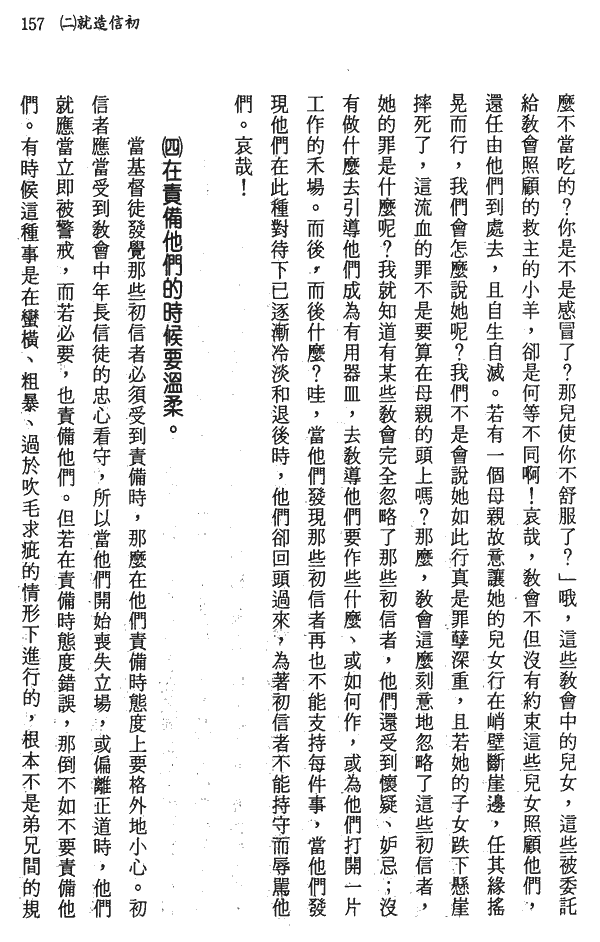 157　㈡就造信初
麼不當吃的？你是不是感冒了？那兒使你不舒服了？」哦，這些敎會中的兒女，這些被委託
給敎會照顧的救主的小羊，卻是何等不同啊！哀哉，敎會不但沒有約束這些兒女照顧他們，
還任由他們到處去，且自生自滅。若有一個母親故意讓她的兒女行在峭壁斷崖邊，任其緣搖
晃而行，我們會怎麼說她呢？我們不是會說她如此行真是罪孽深重，且若她的子女跌下懸崖
摔死了，這流血的罪不是要算在母親的頭上嗎？那麼，敎會這麼刻意地忽略了這些初信者，
她的罪是什麼呢？我就知道有某些敎會完全忽略了那些初信者，他們還受到懷疑、妒忌；沒
有做什麼去引導他們成為有用器皿，去敎導他們要作些什麼、或如何作，或為他們打開一片
工作的禾場。而後，而後什麼？哇，當他們發現那些初信者再也不能支持每件事，當他們發
現他們在此種對待下已逐漸冷淡和退後時，他們卻回頭過來，為著初信者不能持守而辱罵他
們。哀哉！
㈣在責備他們的時候要溫柔。
當基督徒發覺那些初信者必須受到責備時，那麼在他們責備時態度上要格外地小心。初
信者應當受到敎會中年長信徒的忠心看守，所以當他們開始喪失立場，或偏離正道時，他們
就應當立即被警戒，而若必要，也責備他們。但若在責備時態度錯誤，那倒不如不要責備他
們。有時候這種事是在蠻橫、粗暴、過於吹毛求疵的情形下進行的，根本不是弟兄間的規